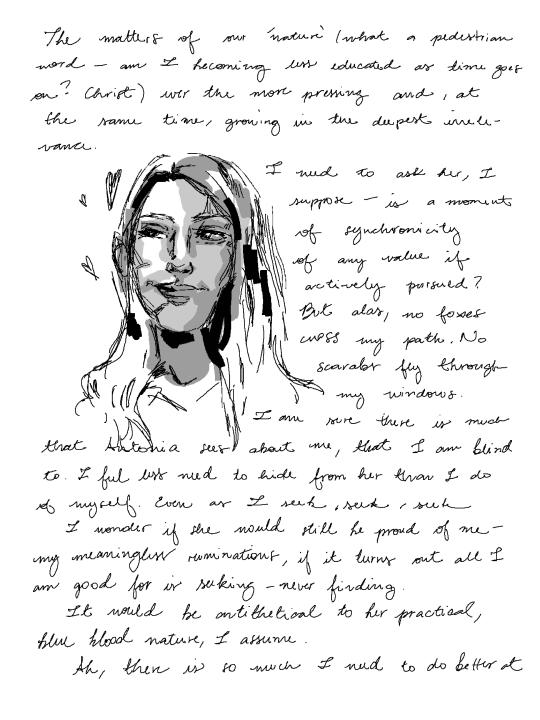 The matters of our 'nature' (what a pedestrian
word – am I becoming less educated as time goes
on? Christ) were the more pressing and, at
the same time, growing in the deepest irrele-
vance.
I need to ask her, I
suppose – is a moment
of synchronicity
of any value if
actively pursued?
But alas, no foxes
cross my path. No
scarabs fly through
my windows.
I am sure there is much
that Antonia sees about me, that I am blind
to. I feel less need to hide from her than I do
of myself. Even as I seek, seek, seek
I wonder if she would still be proud of me –
my meaningless ruminations, if it turns out all I
am good for is seeking – never finding.
It would be antithetical to her practical,
blue blood nature, I assume.
Ah, there is so much I need to do better at